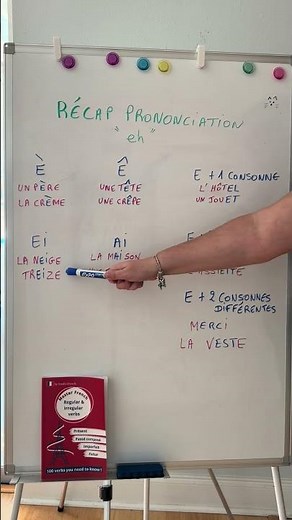 RÉCAP PRONONCIATION
"eh"
È
UN PÈRE
LA CRÈME
Ê
UNE TÊTE
UNE CRÊPE
E + 1 CONSONNE
L'HÔTEL
UN JOUET
Ei
LA NEIGE
TREIZE
Ai
LA MAISON
E + 2 CONSONNES
DIFFÉRENTES
MERCI
LA VESTE
Master French
Regular &
Irregular
verbs
Présent
Passé Composé
Imparfait
Futur
100 verbs you need to know!